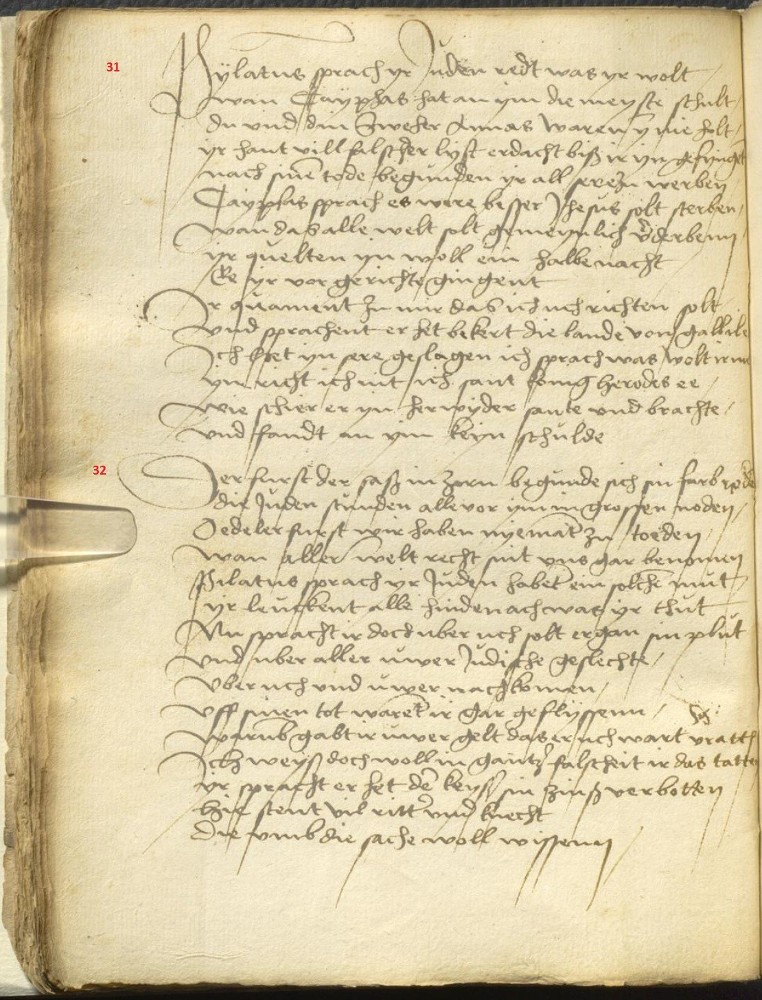 31
Pylatus sprach yr Juden redt was yr wolt
wan Cayphas hat an ym die meyste schult
du und din Sweher Annas waren ym nie holt
yr hant vill falscher lyst erdacht biß ir yn gefyngt
nach sinē tode begunden yr all sere zu werben
Cayphas sprach es were besser Jhesus solt sterben
wan das alle welt solt gemeynlich vderbenn
yr quelten yn woll ein halbe nacht
Ee yr vor gerichte gingent
Ir quament zu mir das ich uch richten solt
und sprachent er het bekert die lande von gallile
Ich hiet yn sere geslagen ich sprach was wolt ir me
yn richt ich nit ich sant konig herodes ee
wie schier er yn herwyder sante und brachte
und fandt an ym keyn schulde
32
Der furst der saß in zorn begunde sich sin farb
die Juden stunden alle vor ym in grossen noden
O edeler furst wir haben nyemāt zu toeden
wan aller welt recht sint uns gar benomen
Pilatus sprach yr Juden habet ein solchē mut
yr leuckent alle hinde nach was yr thut
Nu spracht ir doch uber uch solt ergan sin plut
und uber aller uwer Judische geslechte
uber uch und uwer nachkomen
uff sinen tot waret ir gar geflyssenn
warūb gabt ir uwer gelt das er uch wart
Ich weyß doch woll in gantz falscheit ir das tatten
yr spracht er het dē keyß sin zinß verbotten
hie stent vil ritt und knecht
die umb die sache woll wissenn